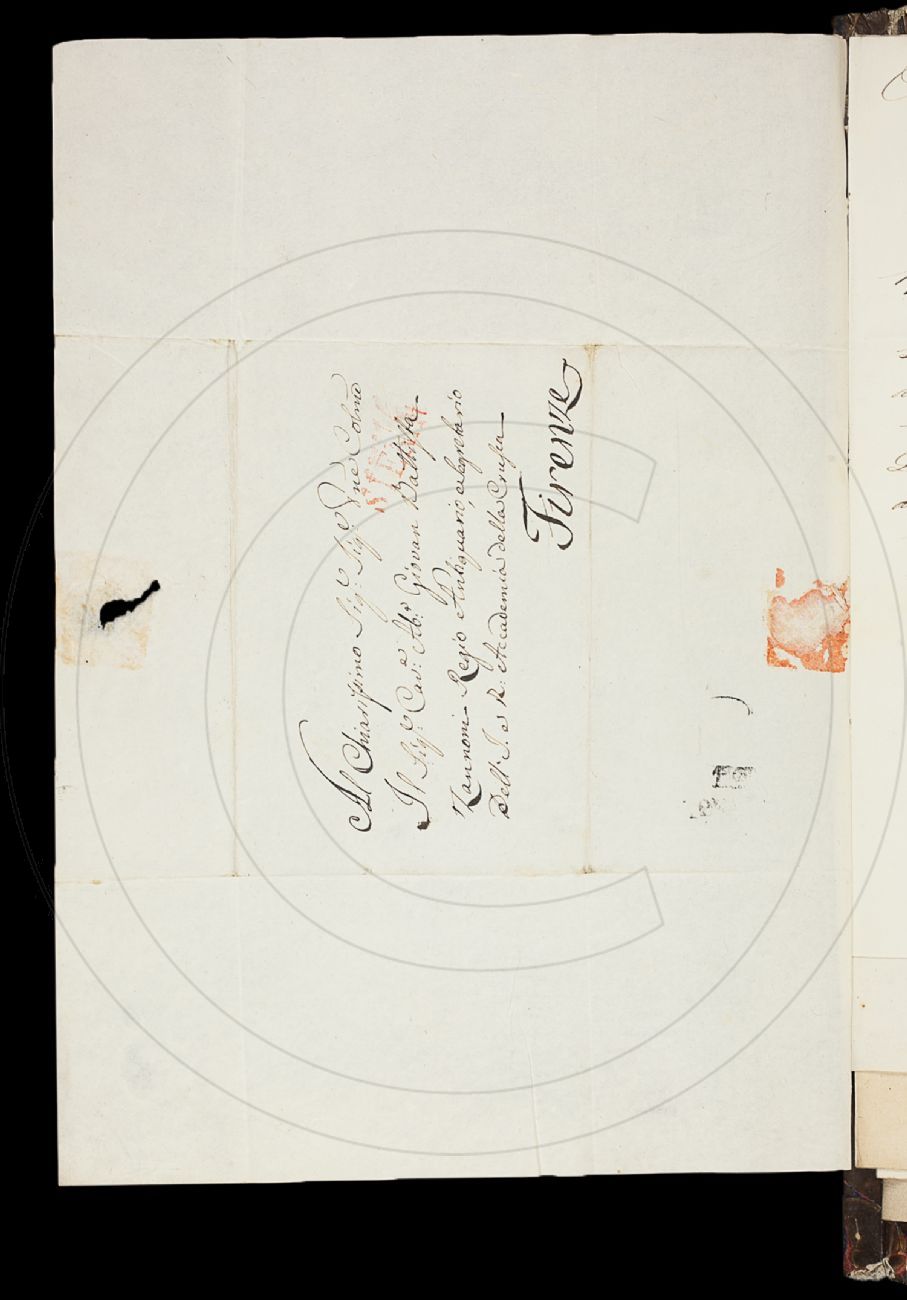 Al Chiarissimo Sig.e Sig.e Pne Colmo
Il Sig.e Cav.e Ab.e Giovan Battista
Zannoni Regio Antiquario, e Segretario
Dell' I. e R. Accademia della Crusca
Firenze